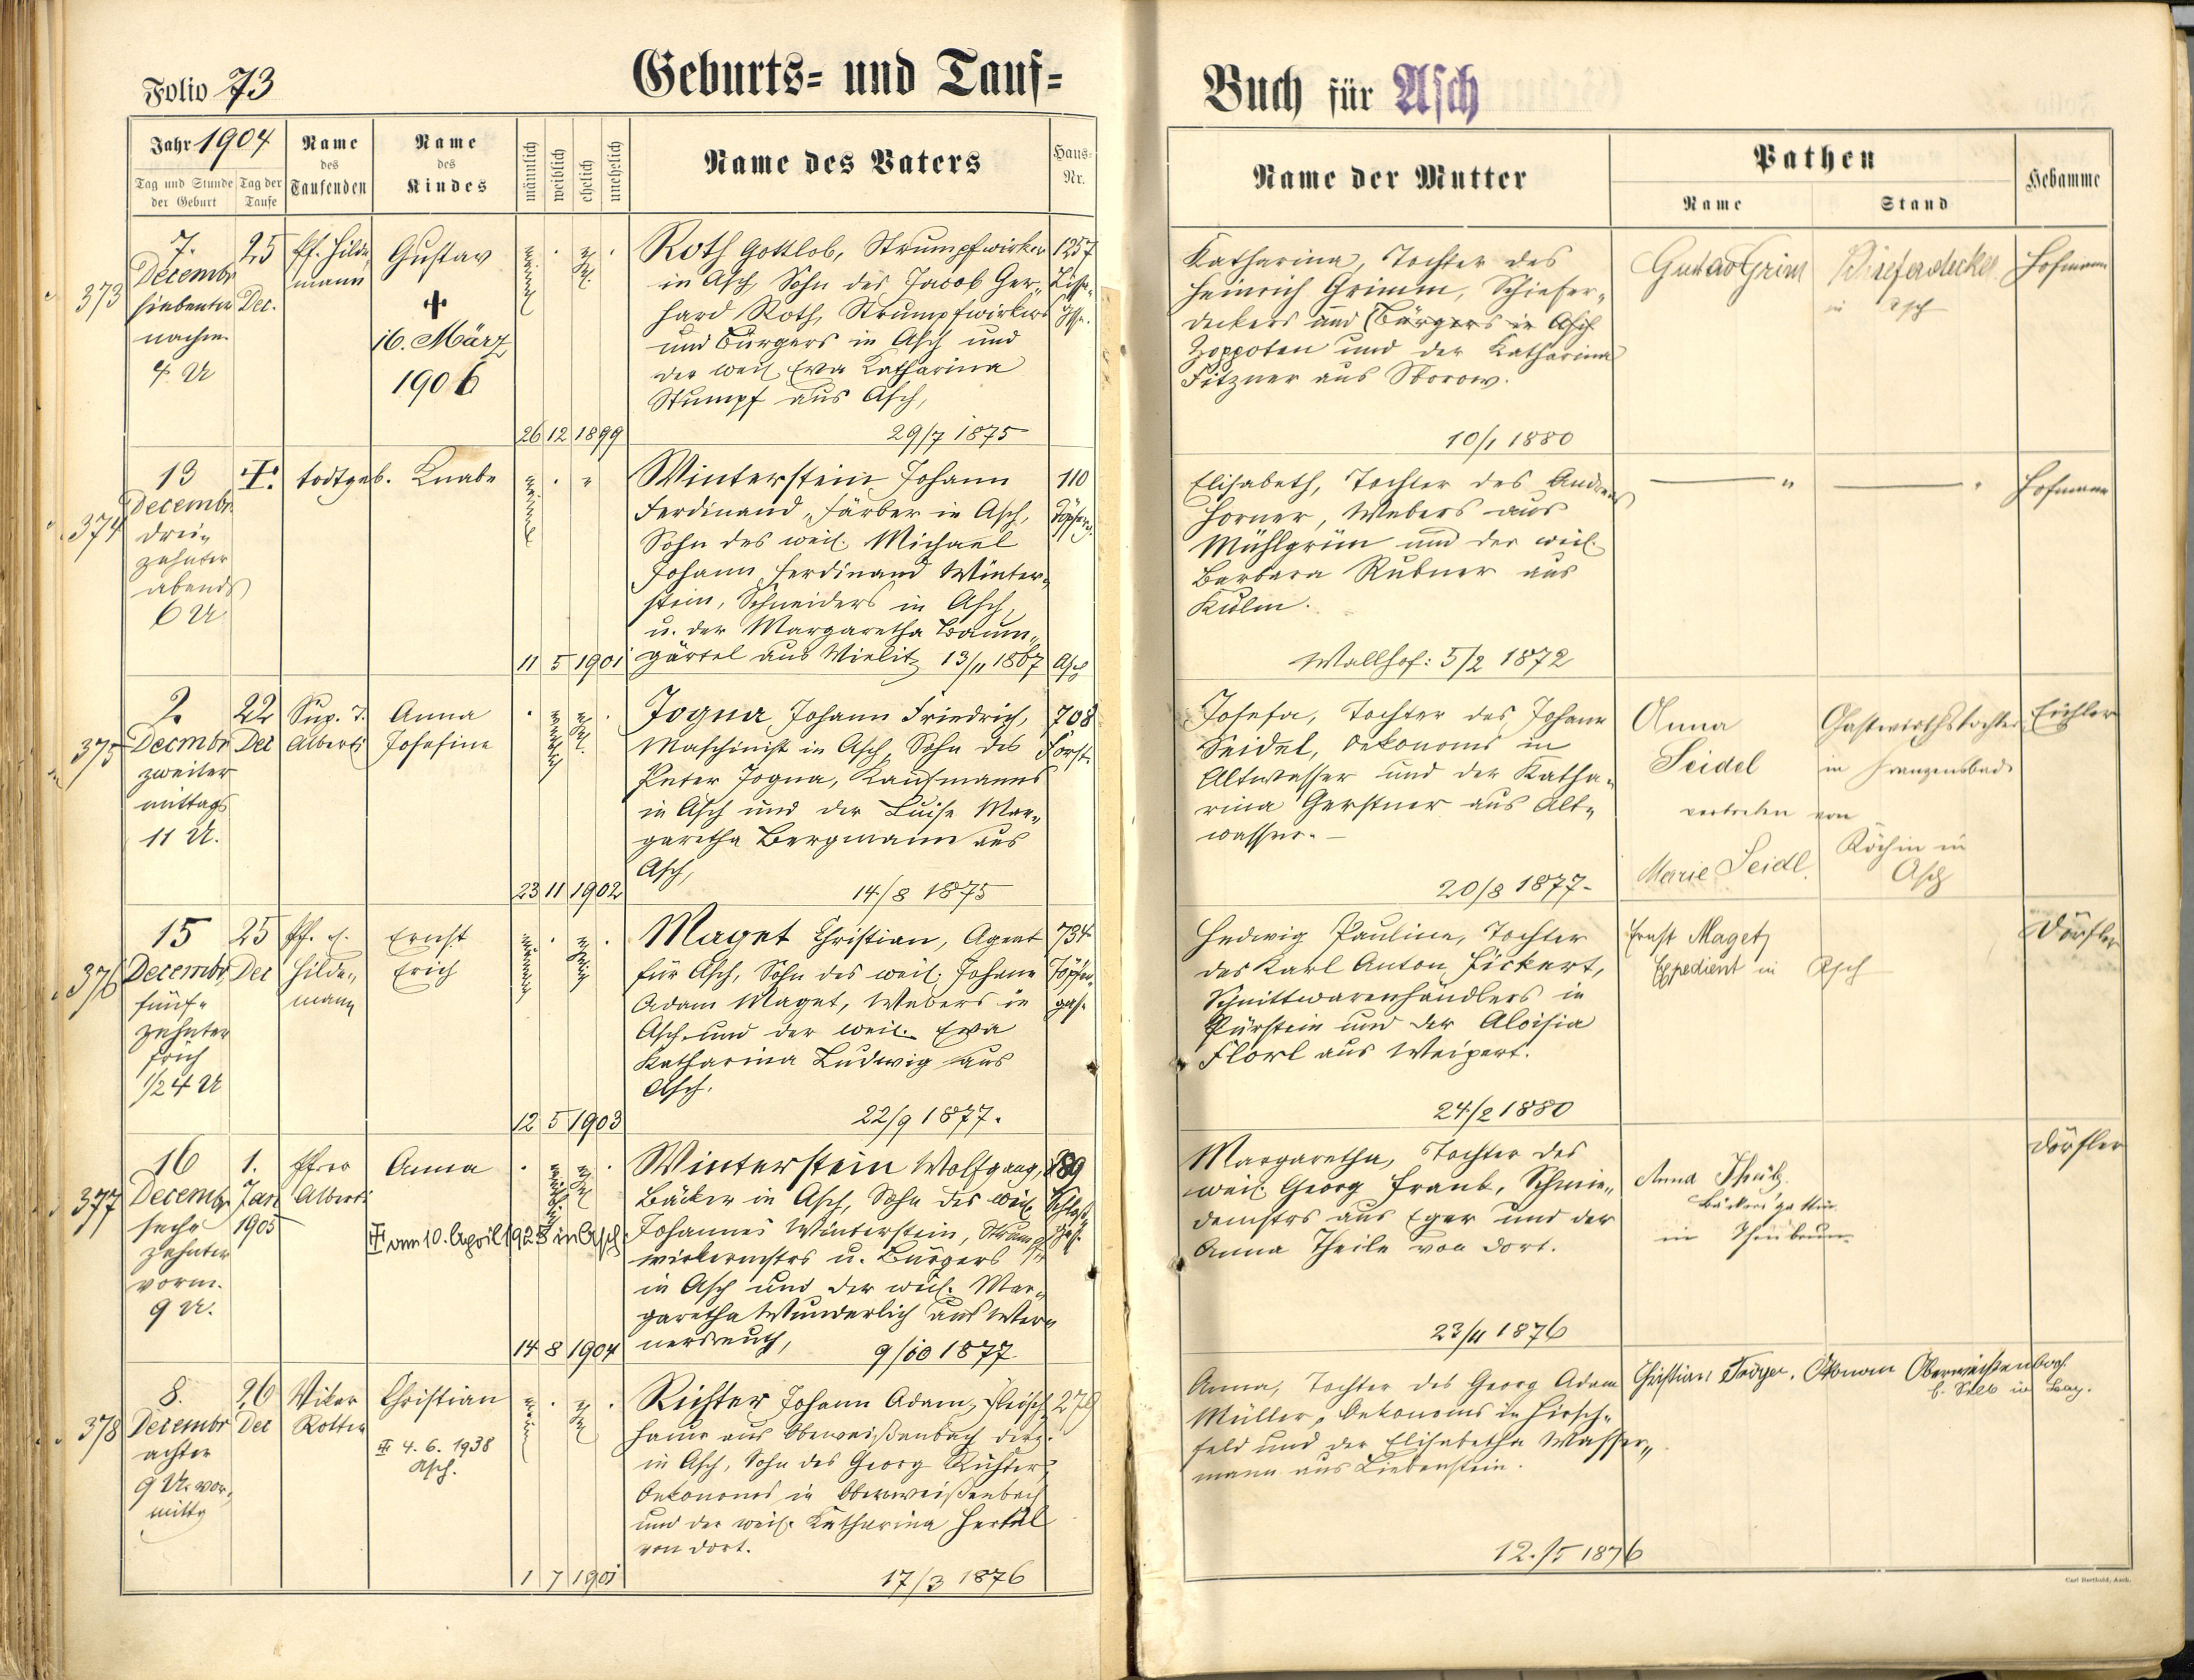 Folio 73
Geburts= und Tauf=
Buch für Asch
Jahr 1904
Tag und Stunde der Geburt
Tag der Taufe
Name des Taufenden
Name des Kindes
männlich
weiblich
ehelich
unehelich
Name des Vaters
Haus-Nr.
Name der Mutter
Pathen
Name
Stand
Hebamme
373
7.
Decembr
siebenter
nachm.
4 U
25
Dec.
Pf. Hilde
mann
Gustav
16. März
1906
26 12 1899
Roth Gottlob, Strumpfwirker
in Asch, Sohn des Jacob Ger„
hard Roth, Strumpfwirkers
und Bürgers in Asch und
der weil. Eva Katharina
Stumpf aus Asch,
29/7 1875
1257
Katharina, Tochter des
Heinrich Grimm, Schiefer„
deckers und Bürgers in Asch
Zoppoten und der Katharina
Fitzner aus
10/1 1880
Gustav Grim
Schieferdecker
in Asch
Hofmann
374
13
Decembr.
drei„
zehnter
abends
6 U
todtgeb. Knabe
11 5 1901
Winterstein Johann
Ferdinand, Färber in Asch,
Sohn des weil. Michael
Johann Ferdinand Winter„
stein, Schneiders in Asch,
u. der Margaretha Baum„
gärtel aus Wielitz 13/11 1867
110
Asch
Elisabeth, Tochter des Andreas
Horner, Webers aus
Mühlgrün und der weil.
Barbara Rubner aus
Kulm.
Wallhof: 5/2 1872
Hofmann
375
2.
Decmbr
zweiter
mittags
11 U.
22
Dec
Sup. T.
Alberti
Anna
Josefine
23 11 1902
Jogna, Johann Friedrich,
Maschinist in Asch, Sohn des
Peter Jogna, Kaufmanns
in Asch und der Luise Mar„
garetha Bergmann aus
Asch,
14/8 1875
708
Forst.
Josefa, Tochter des Johann
Seidel, Oekonoms in
Altwasser und der Katha„
rina Gerstner aus Alt„
wasser. –
20/8 1877-
Anna
Seidel
Gastwirthstochter
in Franzensbad
vertreten von
Marie Seidl.
Köchin in
Asch
Eichler
376
15
Decembr,
fünf„
zehnter
früh
1/2 4 U
25
Dec
Hilde„
mann
Ernst
Erich
12 5 1903
Maget Christian, Agent
für Asch, Sohn des weil. Johann
Adam Maget, Webers in
Asch und der weil. Eva
Katharina Ludwig aus
Asch.
22/9 1877.
734
Töpfer„
gasse
Hedwig Pauline, Tochter
des Karl Anton Pickert,
Schnittwarenhändlers in
Pürstein und der Aloisia
Florl aus Weipert.
24/2 1880
Ernst Maget
Expedient in Asch
Dörfler
377
16
Decembr
sech„
zehnter
vorm.
9 U.
1.
Jan
1905
Pfrer
Alberti
Anna
am 10. April 1928 in Asch.
14 8 1904
Winterstein Wolfgang,
Bäcker in Asch, Sohn des weil.
Johannes Winterstein, Strumpf
wirkermstrs u. Bürgers
in Asch und der weil. Mar„
garetha Wunderlich aus Wer„
nersreuth,
9/10 1877
189
Margaretha, Tochter des
weil. Georg Frank, Schmie„
demstrs aus Eger und der
Anna Theile von dort.
23/11 1876
Anna
Bäckers gattin
in
Dörfler
378
8.
Decembr
achter
9 U. vor„
mittg
26
Dec
Vikar
Rotter
Christian
4. 6. 1938
Asch.
1 7 1901
Richter Johann Adam, Fleisch„
hauer aus Oberweißenbach derz.
in Asch, Sohn des Georg Richter,
Oekonoms in Oberweißenbach
und der weil. Katharina Hertel
von dort.
17/3 1876
279
Anna, Tochter des Georg Adam
Müller, Oekonoms in Hirsch„
feld und der Elisabetha Wasser„
mann aus Liebenstein.
12./5 1876
Christian Oekonom Oberweißenbach
b. Selb in Bay.
Carl Berthold, Asch.